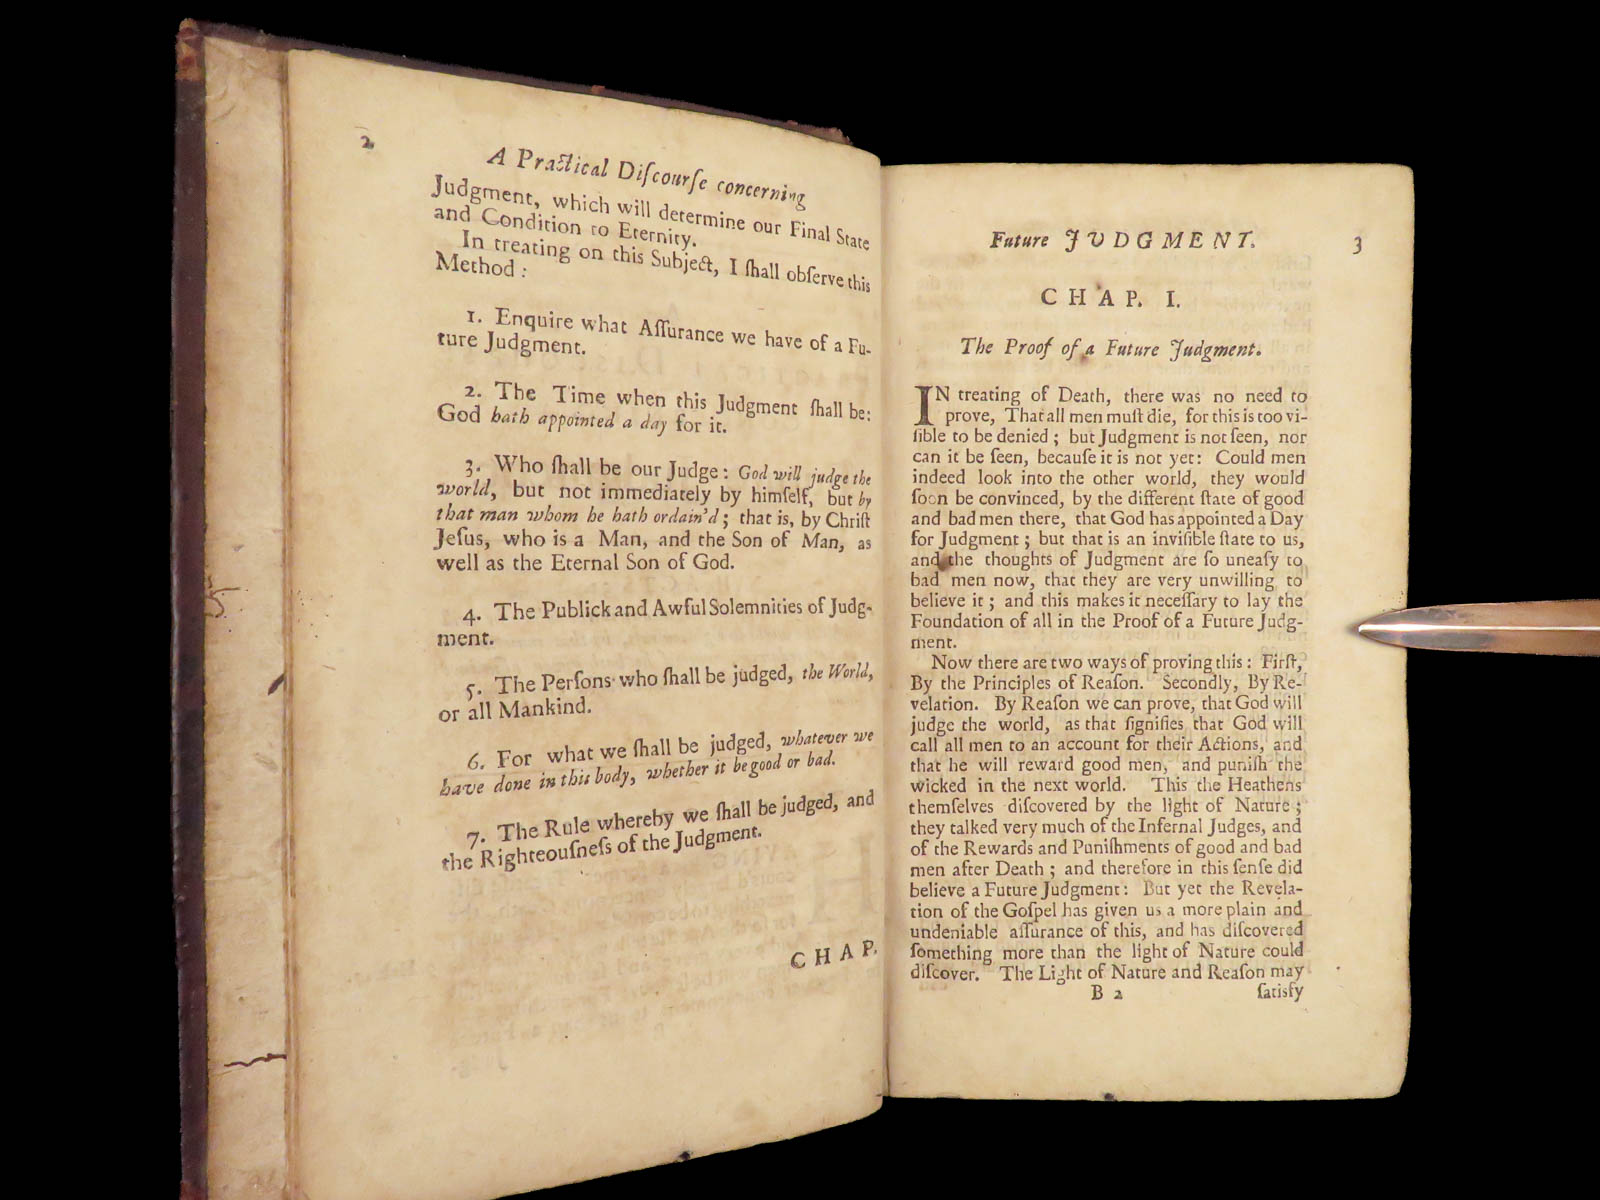 2
A Practical Diſcourſe concerning
Judgment, which will determine our Final State
and Condition to Eternity.
In treating on this Subject, I ſhall obſerve this
Method :
1. Enquire what Aſſurance we have of a Fu-
ture Judgment.
2. The Time when this Judgment ſhall be:
God hath appointed a day for it.
3. Who ſhall be our Judge : God will judge the
world, but not immediately by himſelf, but by
that man whom he hath ordain'd ; that is, by Chriſt
Jeſus, who is a Man, and the Son of Man, as
well as the Eternal Son of God.
4. The Publick and Awful Solemnities of Judg-
ment.
5. The Perſons who ſhall be judged, the World,
or all Mankind.
6. For what we ſhall be judged, whatever we
have done in this body, whether it be good or bad.
7. The Rule whereby we ſhall be judged, and
the Righteouſneſs of the Judgment.
CHAP.
Future JUDGMENT. 3
CHAP. I.
The Proof of a Future Judgment.
IN treating of Death, there was no need to
prove, That all men muſt die, for this is too vi-
ſible to be denied ; but Judgment is not ſeen, nor
can it be ſeen, becauſe it is not yet: Could men
indeed look into the other world, they would
ſoon be convinced, by the different ſtate of good
and bad men there, that God has appointed a Day
for Judgment ; but that is an inviſible ſtate to us,
and the thoughts of Judgment are ſo uneaſy to
bad men now, that they are very unwilling to
believe it ; and this makes it neceſſary to lay the
Foundation of all in the Proof of a Future Judg-
ment.
Now there are two ways of proving this : Firſt,
By the Principles of Reaſon. Secondly, By Re-
velation. By Reaſon we can prove, that God will
judge the world, as that ſignifies that God will
call all men to an account for their Actions, and
that he will reward good men, and puniſh the
wicked in the next world. This the Heathens
themſelves diſcovered by the light of Nature ;
they talked very much of the Infernal Judges, and
of the Rewards and Puniſhments of good and bad
men after Death ; and therefore in this ſenſe did
believe a Future Judgment : But yet the Revela-
tion of the Goſpel has given us a more plain and
undeniable aſſurance of this, and has diſcovered
ſomething more than the light of Nature could
diſcover. The Light of Nature and Reaſon may
B 2 ſatisfy